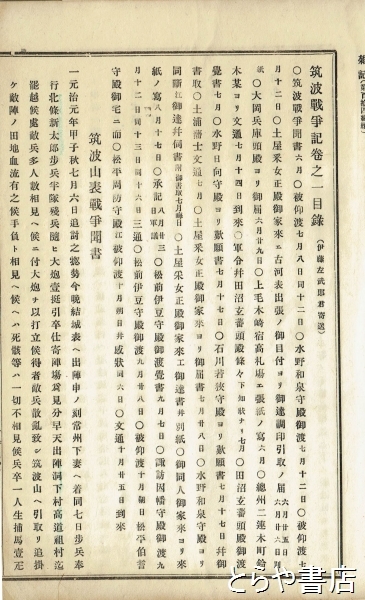 筑波戰爭記卷之一目錄
(伊藤左武郎君寄送)
○筑波戰爭聞書六月○被仰渡七月八日同十二日○水野和泉守殿御渡七月十二日○被仰渡七
月十二日○土屋釆女正殿御家來ヱ古河表出張ノ御目付ヨリ御達調印引取ノ屆六月廿五日
○大岡兵庫頭殿ヨリ御屆六月廿九日○上毛木崎宿高札場ヱ張紙ノ寫六月○總州二連木町
木某ヨリ文通七月十四日到來○軍令幷田沼玄蕃頭殿條々下知狀ナリ七月○田沼玄蕃頭殿渡
覺書七月○水野日向守殿ヨリ歎願書七月○石川若狹守殿ヨリ歎願書七月十七日幷御
書取○土浦藩士文通七月○土屋釆女正殿御家來ヨリ御屆書七月廿八日○水野和泉守殿ヨリ
○土屋釆女正殿御家來ヱ御達書幷別紙○御同人御家來ヨリ來
紙ノ寫八月十七日○承記八月廿三日○松前伊豆守殿御渡覺書九月七日○諏訪因幡守殿御渡九
月十二日同十三日同十六日○松前伊豆守殿御渡九月廿八日○被仰渡十月朔日松平伯耆
守殿御宅ニ而○松平周防守殿ヱ被仰渡十月朔日幷感狀同六日○文通十月廿五日到來
筑波山表戰爭聞書
一元治元年甲子秋七月六日追討之御勢今晚結城表ヘ出陣申ノ刻常州下妻ヘ着同七日步兵奉
行北條新太郎步兵半隊殘兵隨ヒ大炮壹挺引卒仕寄陣場爲見分早天出陣洞下村高道祖村迄
罷越候處敵兵多人數相見ヘ候ニ付大炮ヲ以打立候得者敵兵散亂致シ筑波山ヘ引取リ追掛
ケ敵陣ノ田地血流有之候手負ト相見ヘ候ヘハ死骸等ハ一切不相見候兵卒一人生捕馬壹疋
とらや書店